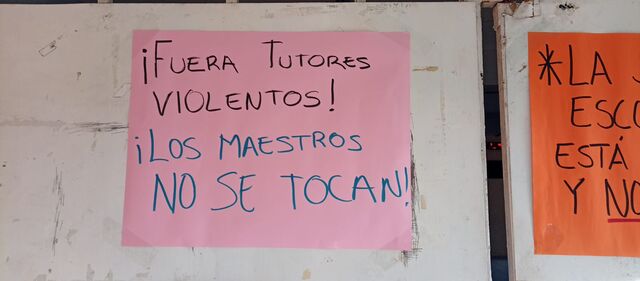 ¡FUERA TUTORES
VIOLENTOS!
¡LOS MAESTROS
NO SE TOCAN!
*LA
ESCO
ESTÁ
Y NO